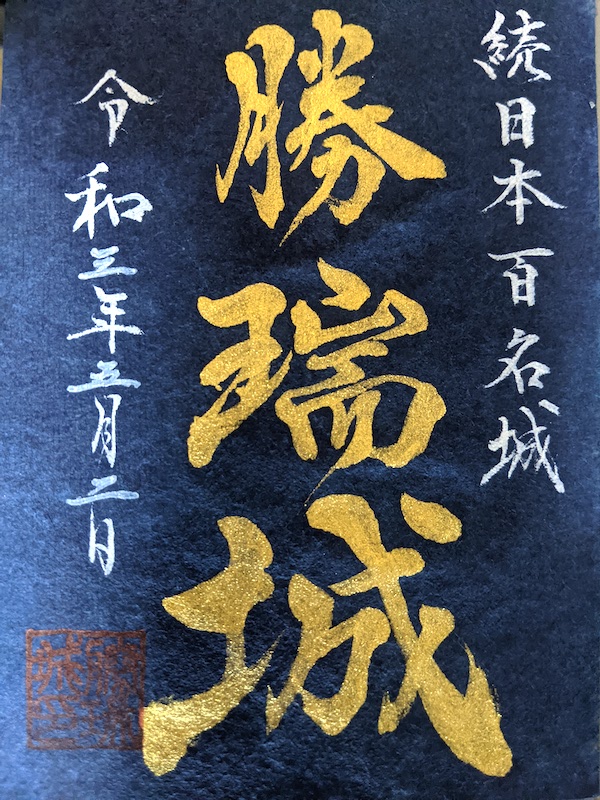 続日本百名城
勝瑞城
令和三年五月二日